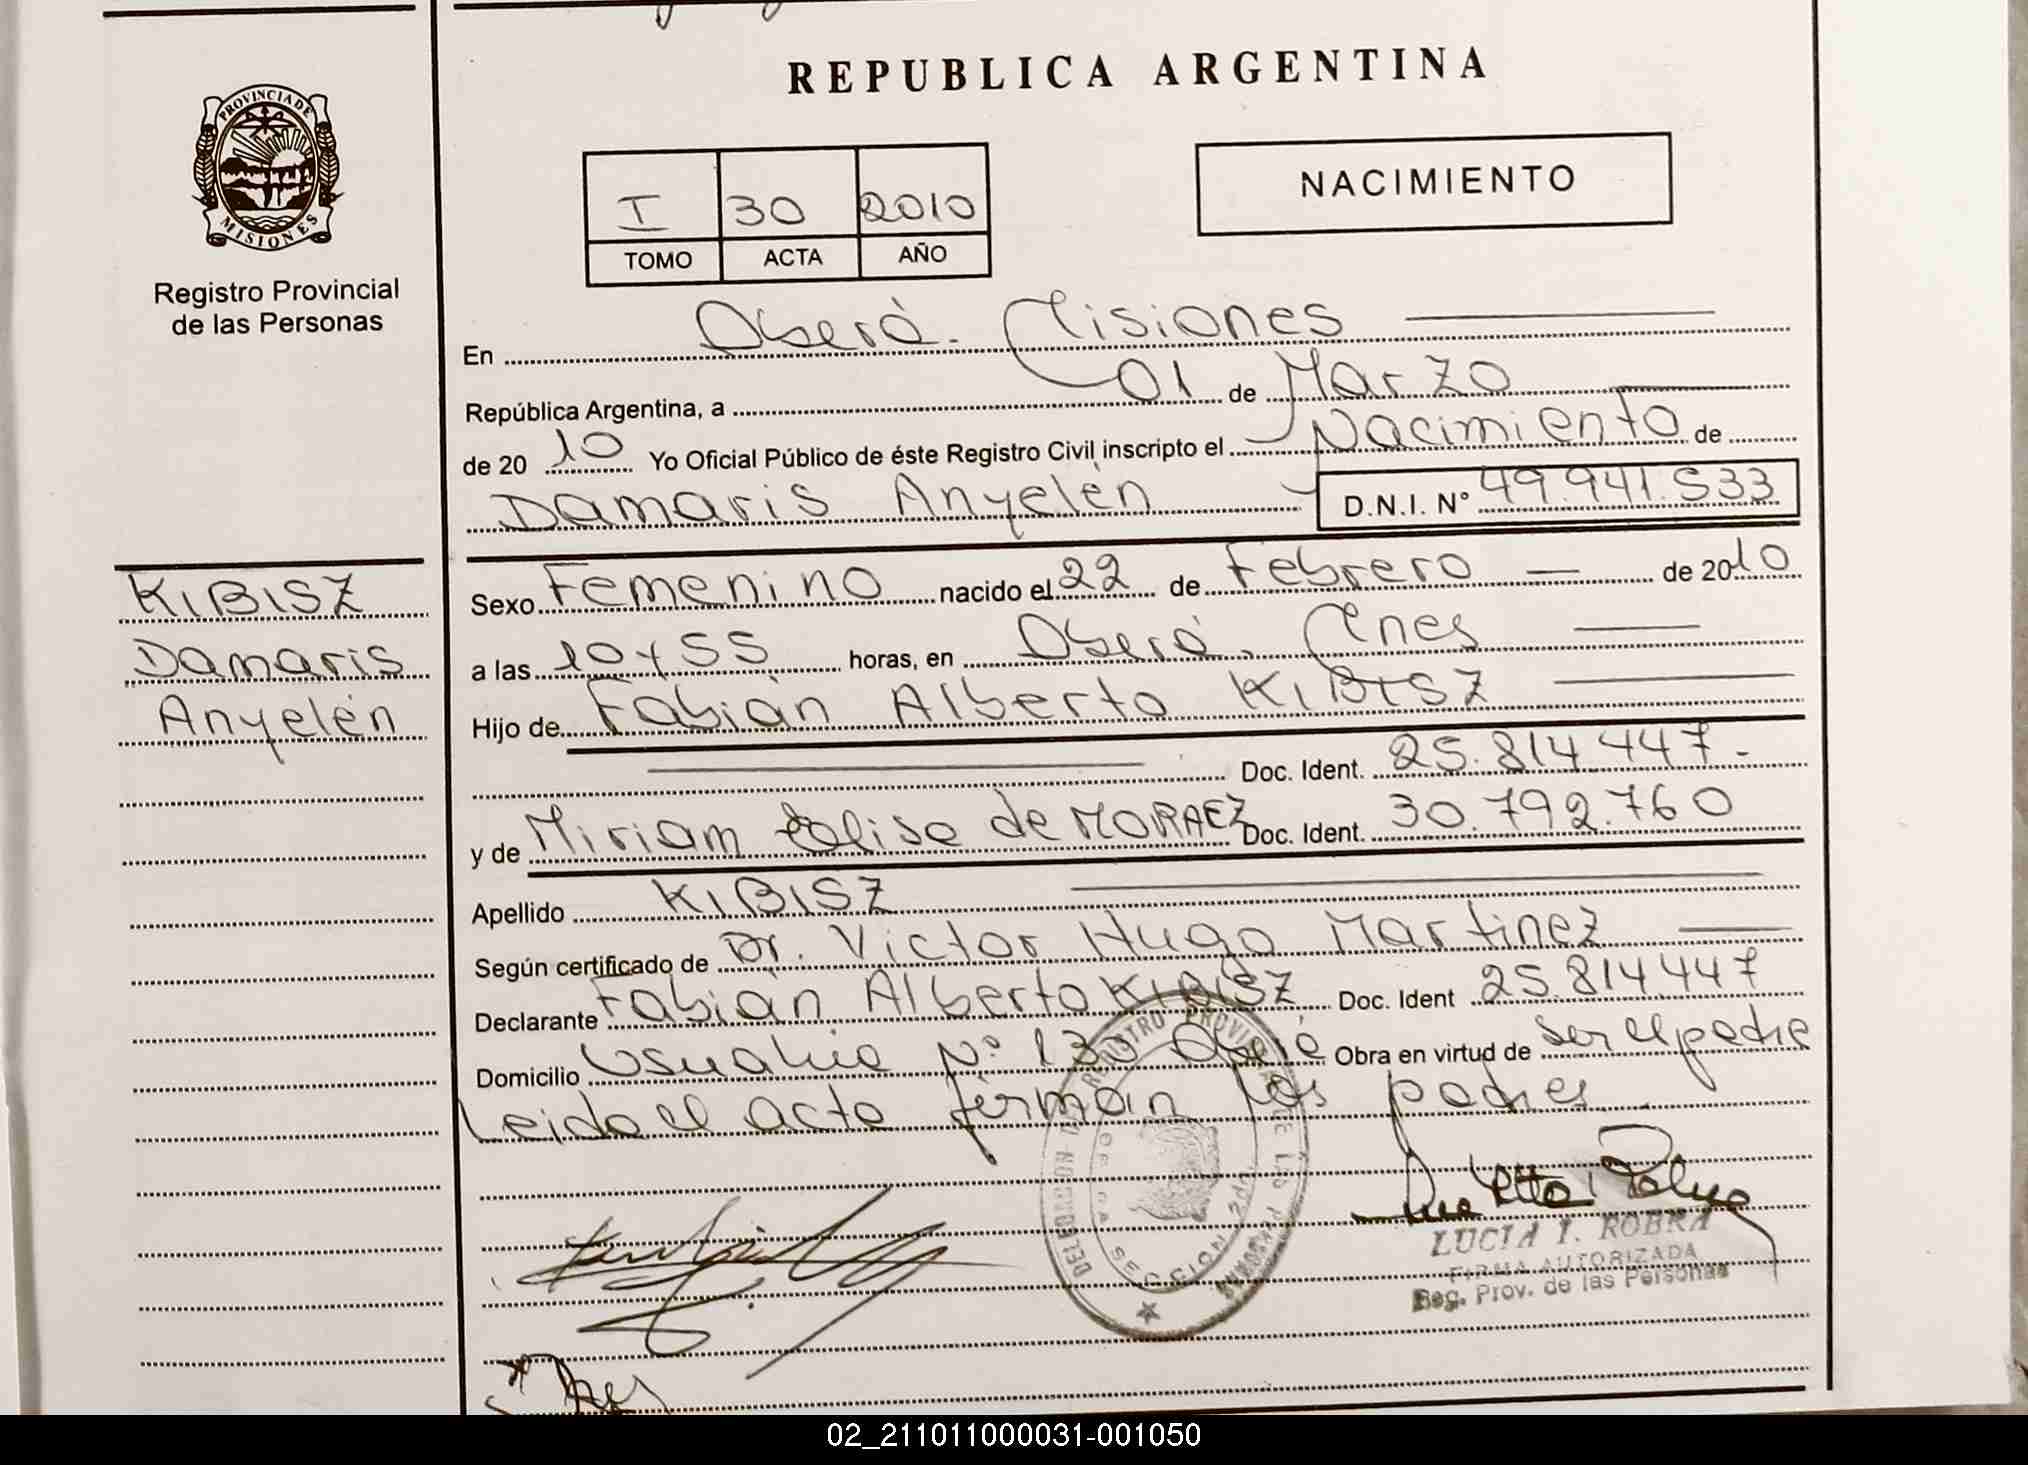 REPUBLICA ARGENTINA
PROVINCIA DE
MISIONES
Registro Provincial
de las Personas
I 30 2010
TOMO ACTA AÑO
NACIMIENTO
En Oberá. Misiones
República Argentina, a 01 de Marzo
de 2010 Yo Oficial Público de éste Registro Civil inscripto el Nacimiento de
Damaris Anyelén D.N.I. Nº 49.941.533
KIBISZ
Damaris
Anyelén
Sexo Femenino nacido el 22 de Febrero de 2010
a las 10 y 55 horas, en Oberá, Mnes
Hijo de Fabián Alberto KIBISZ
Doc. Ident. 25.814.447.-
y de Miriam Elisa de MORAEZ Doc. Ident. 30.792.760
Apellido KIBISZ
Según certificado de Dr. Victor Hugo Martinez
Declarante Fabián Alberto KIBISZ Doc. Ident 25.814.447
Domicilio Usuahia Nº 130 Oberá Obra en virtud de ser el padre
Leida el acta firman los padres
REGISTRO PROVINCIAL DE LAS PERSONAS
SECCION
LUCIA I. ROBRA
FIRMA AUTORIZADA
Reg. Prov. de las Personas
02_211011000031-001050